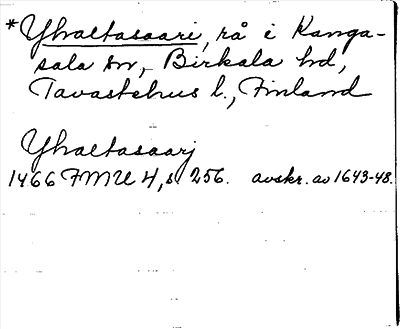 *Yhaltasaari, rå i Kanga-
sala sn, Birkala hd,
Tavastehus l., Finland
Yhaltasaarj
1466 FMU 4, s 256. avskr. av 1643-48.